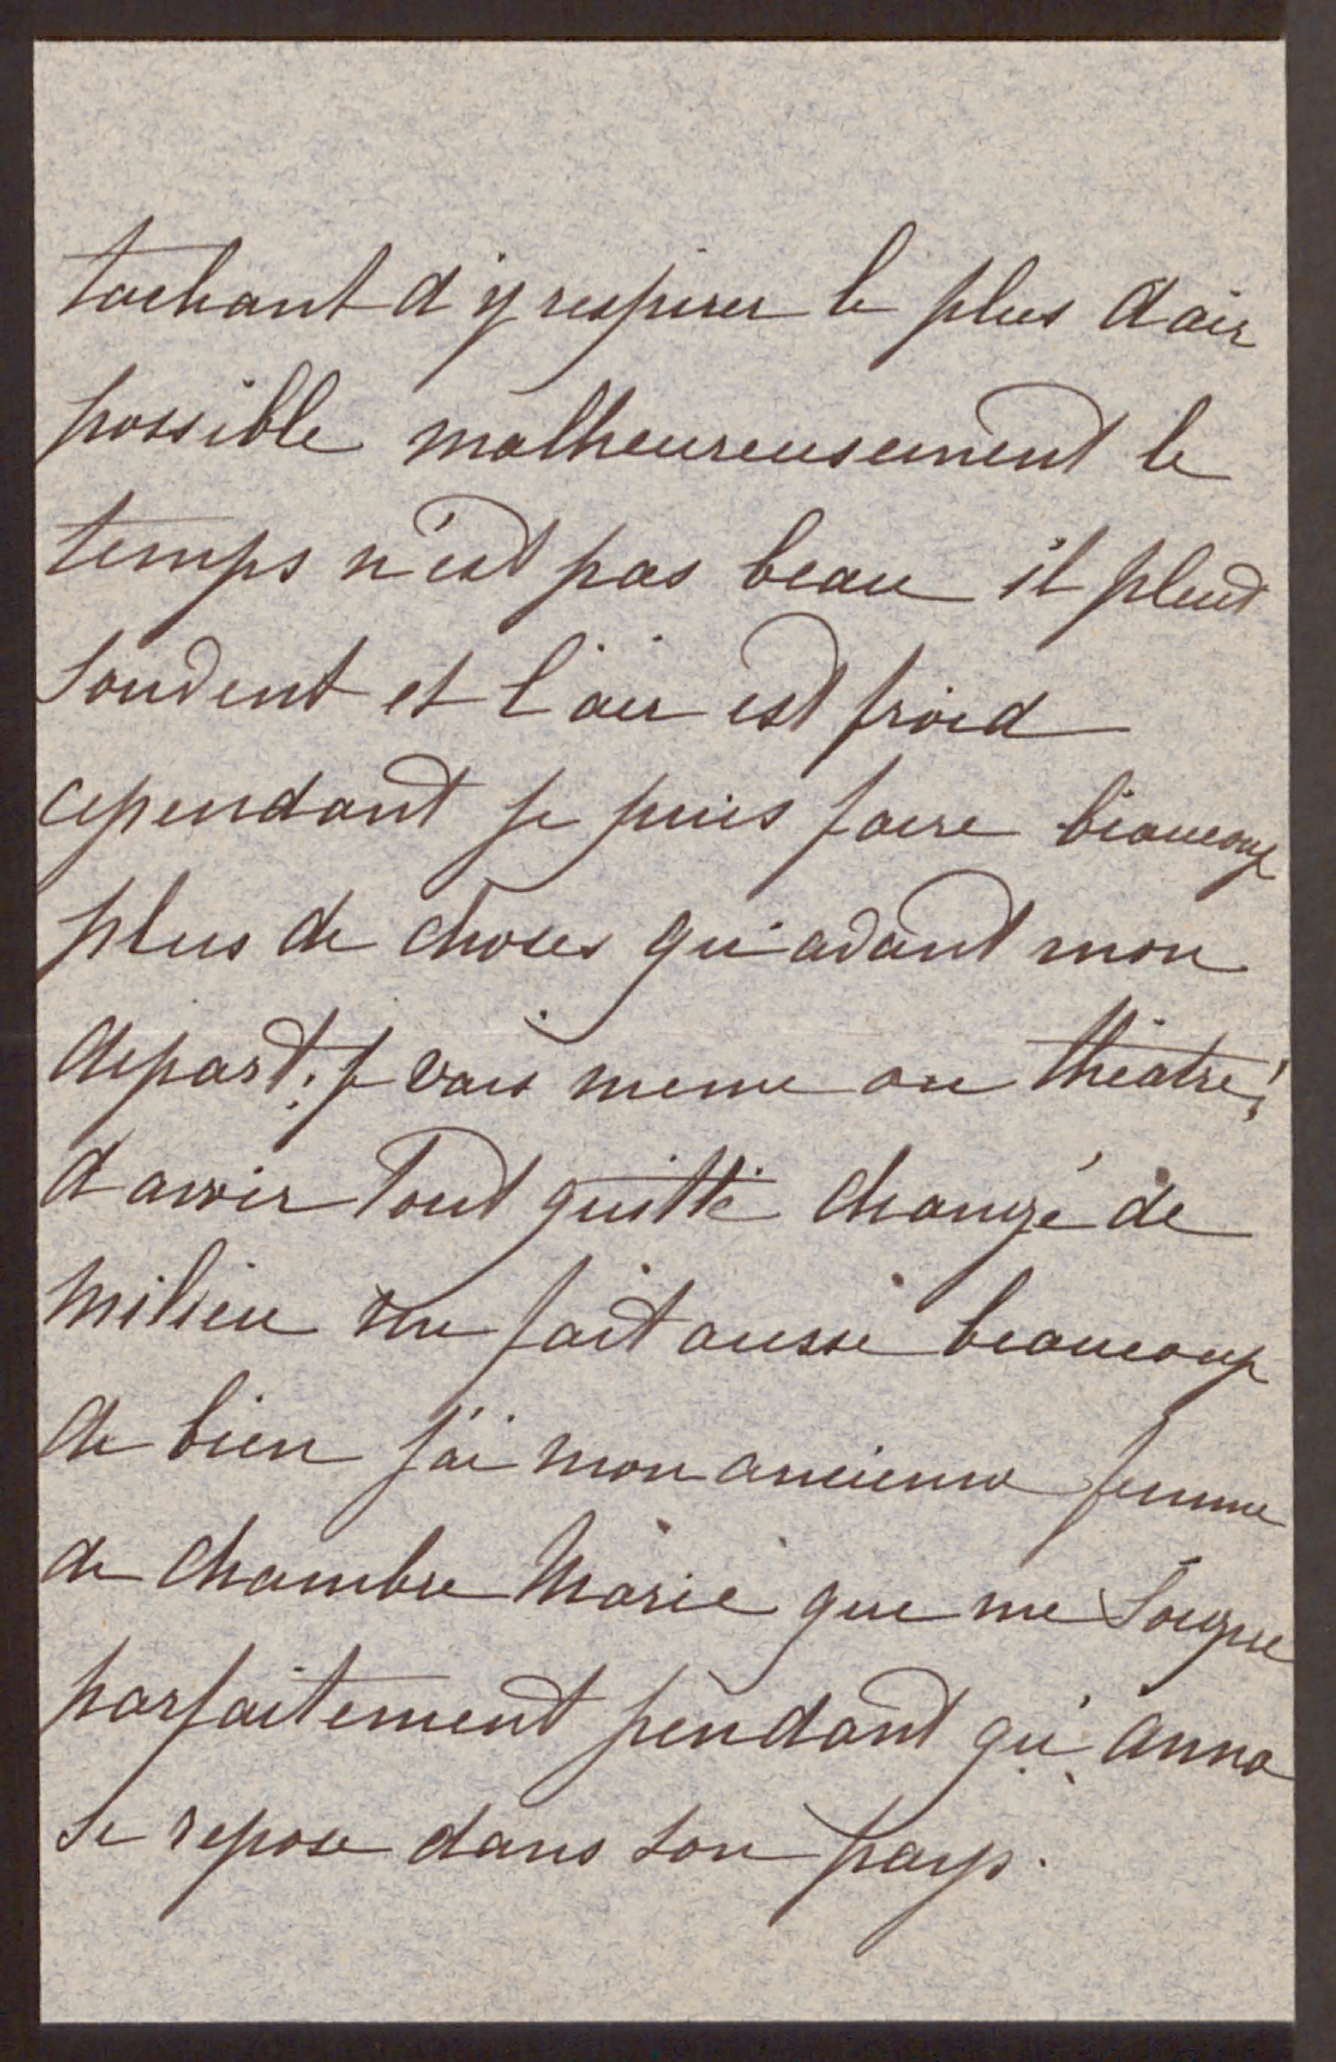 tachant d'y respirer le plus d'air
possible malheureusement le
temps n'est pas beau il pleut
souvent et l'air est froid
cependant je puis faire beaucoup
plus de choses qu'avant mon
depart; je vais meme au théatre!
d'avoir tout quitté changé de
milieu me fait aussi beaucoup
de bien j'ai mon ancienne femme
de chambre Marie qui me soigne
parfaitement pendant qu'Anna
se repose dans son pays.